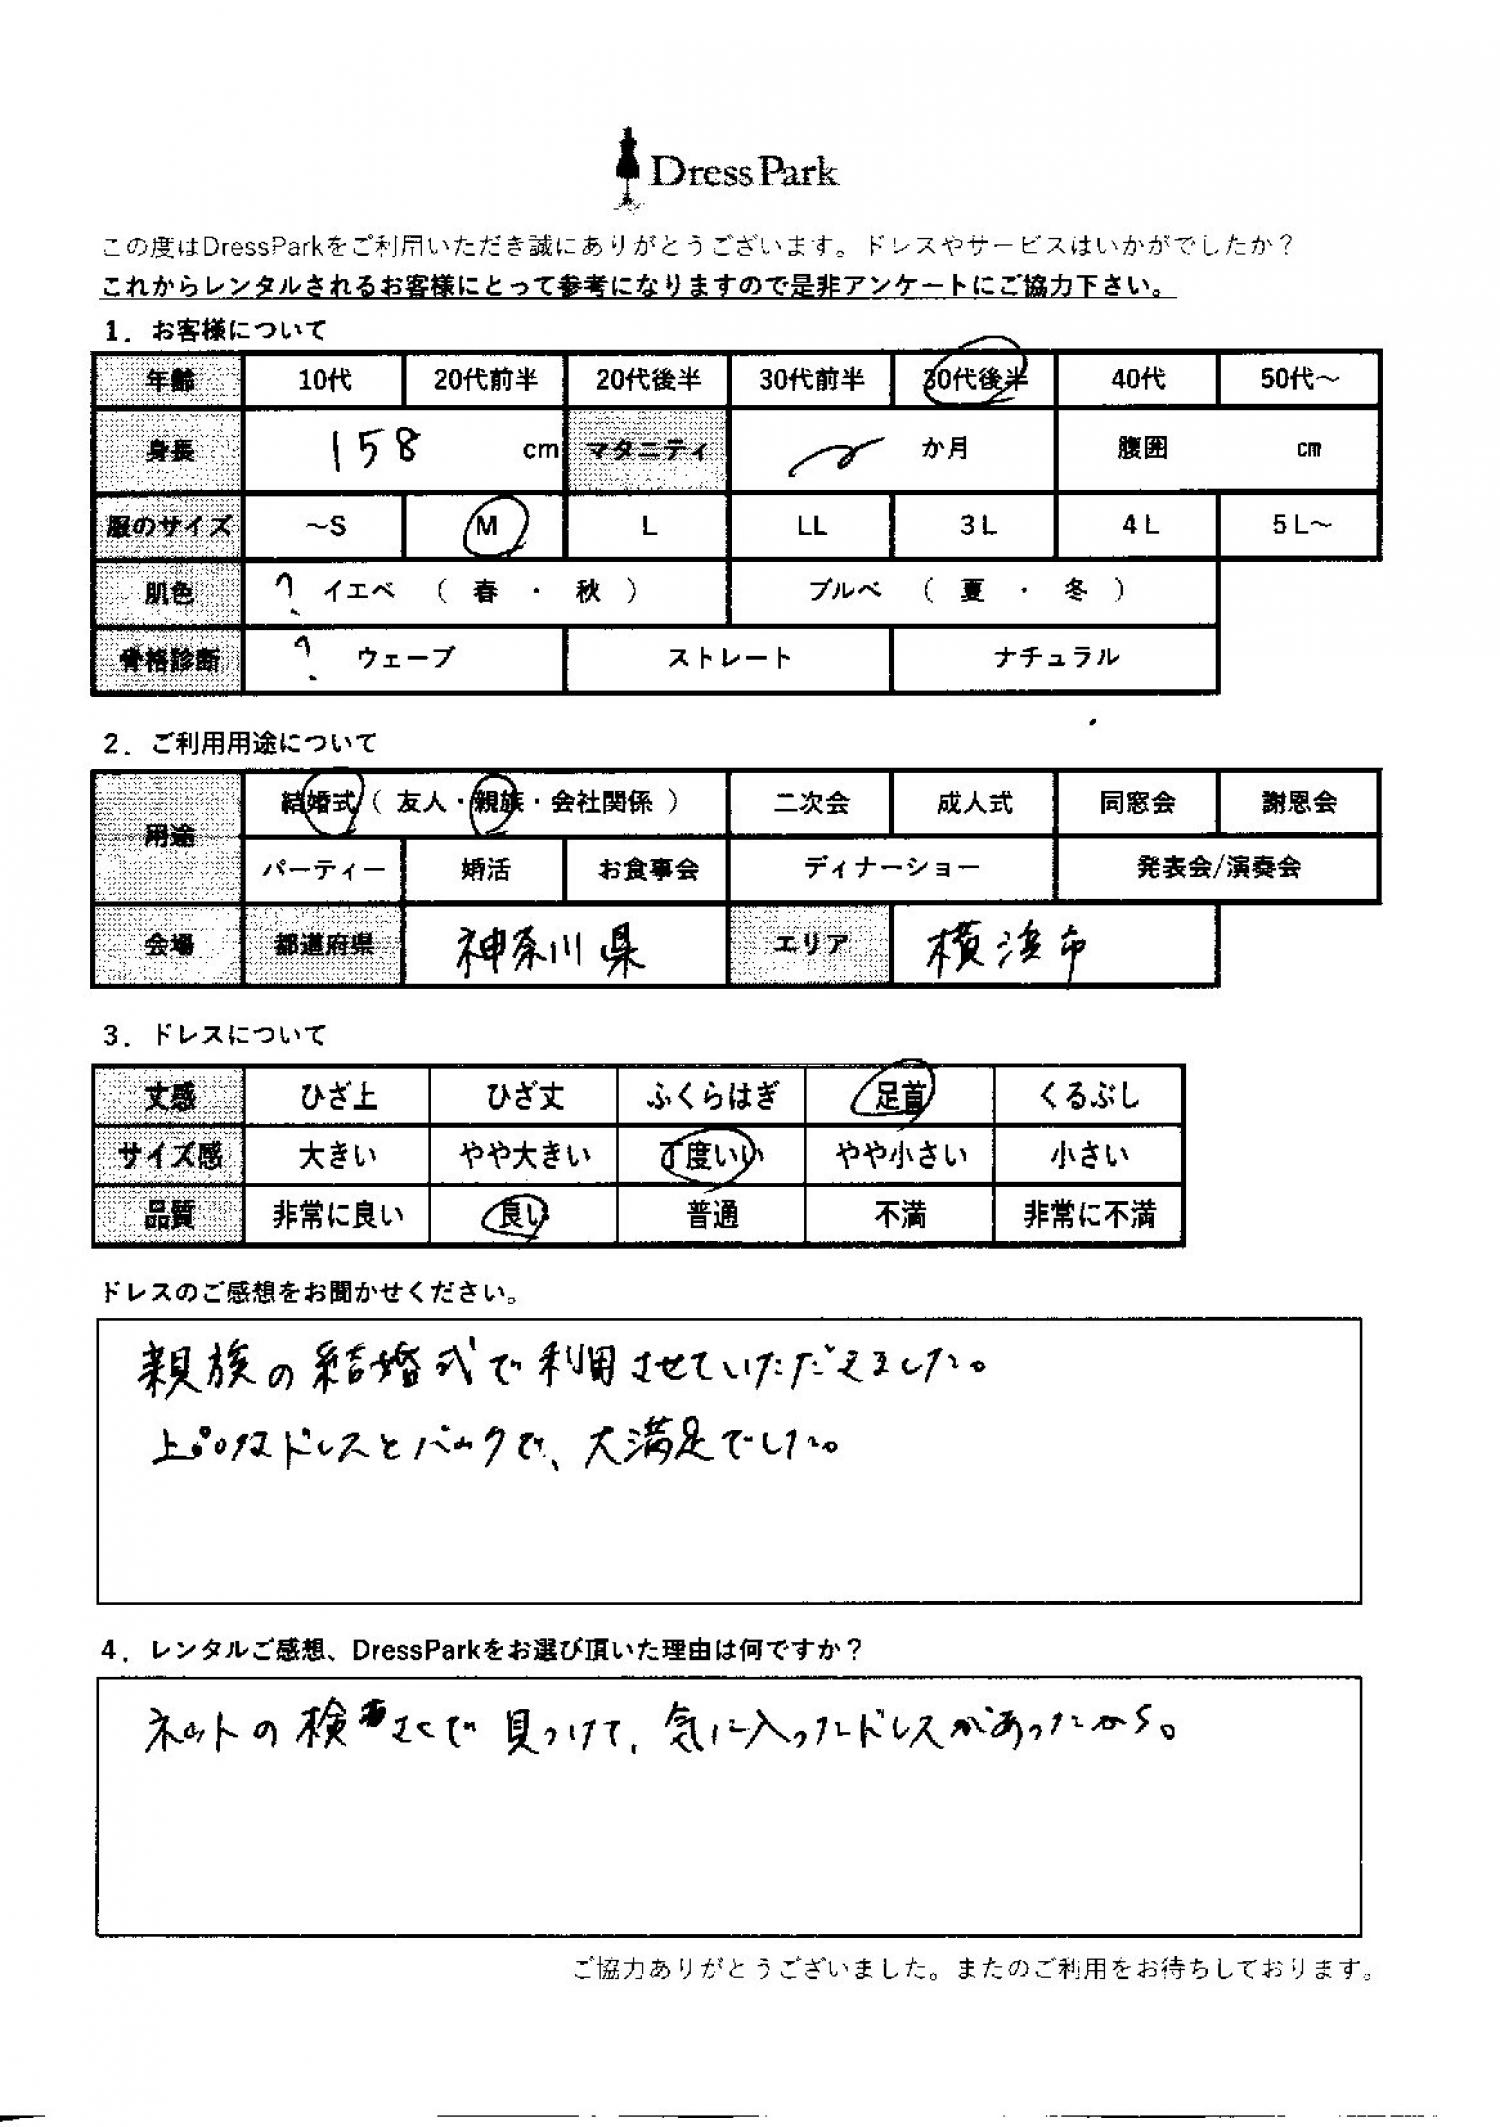 DressPark
この度はDressParkをご利用いただき誠にありがとうございます。ドレスやサービスはいかがでしたか？
これからレンタルされるお客様にとって参考になりますので是非アンケートにご協力下さい。
1．お客様について
年齢 10代 20代前半 20代後半 30代前半 30代後半 40代 50代～
身長 158 cm マタニティ か月 腹囲 cm
服のサイズ ～S M L LL 3L 4L 5L～
肌色 ? イエベ （ 春 ・ 秋 ） ブルベ （ 夏 ・ 冬 ）
骨格診断 ? ウェーブ ストレート ナチュラル
2．ご利用用途について
用途 結婚式（ 友人・親族・会社関係 ） 二次会 成人式 同窓会 謝恩会
パーティー 婚活 お食事会 ディナーショー 発表会/演奏会
会場 都道府県 神奈川県 エリア 横浜市
3．ドレスについて
丈感 ひざ上 ひざ丈 ふくらはぎ 足首 くるぶし
サイズ感 大きい やや大きい 丁度いい やや小さい 小さい
品質 非常に良い 良い 普通 不満 非常に不満
ドレスのご感想をお聞かせください。
親族の結婚式で利用させていただきました。
上品なドレスとバックで、大満足でした。
4．レンタルご感想、DressParkをお選び頂いた理由は何ですか？
ネットの検さくで見つけて、気に入ったドレスがあったから。
ご協力ありがとうございました。またのご利用をお待ちしております。